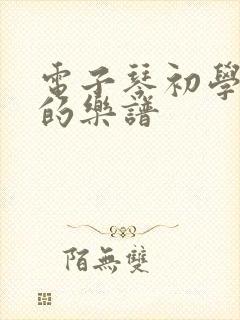 電子琴初學
的樂譜
陌無雙